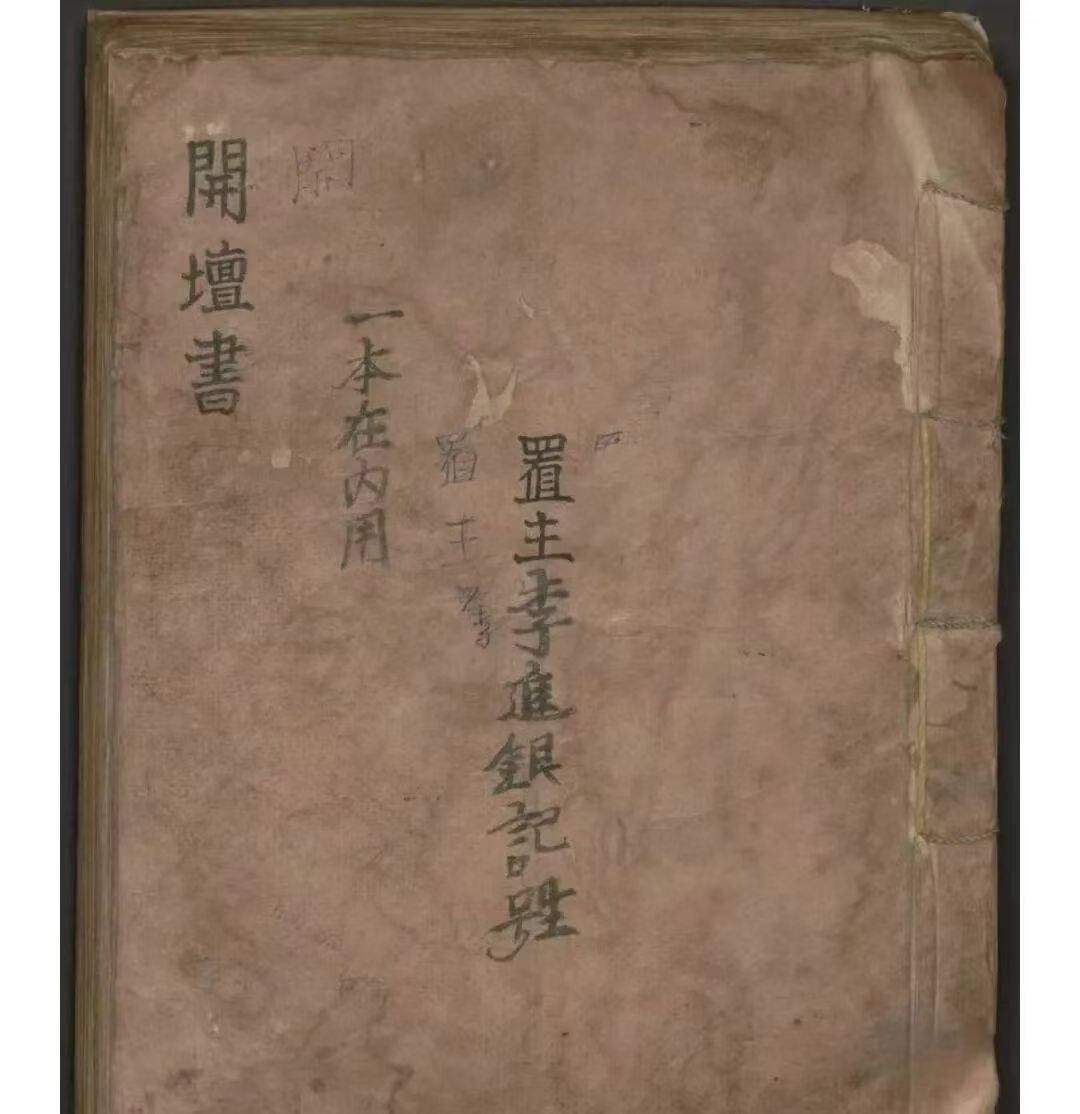 開壇書
一本在内用
置主
置主李進銀記